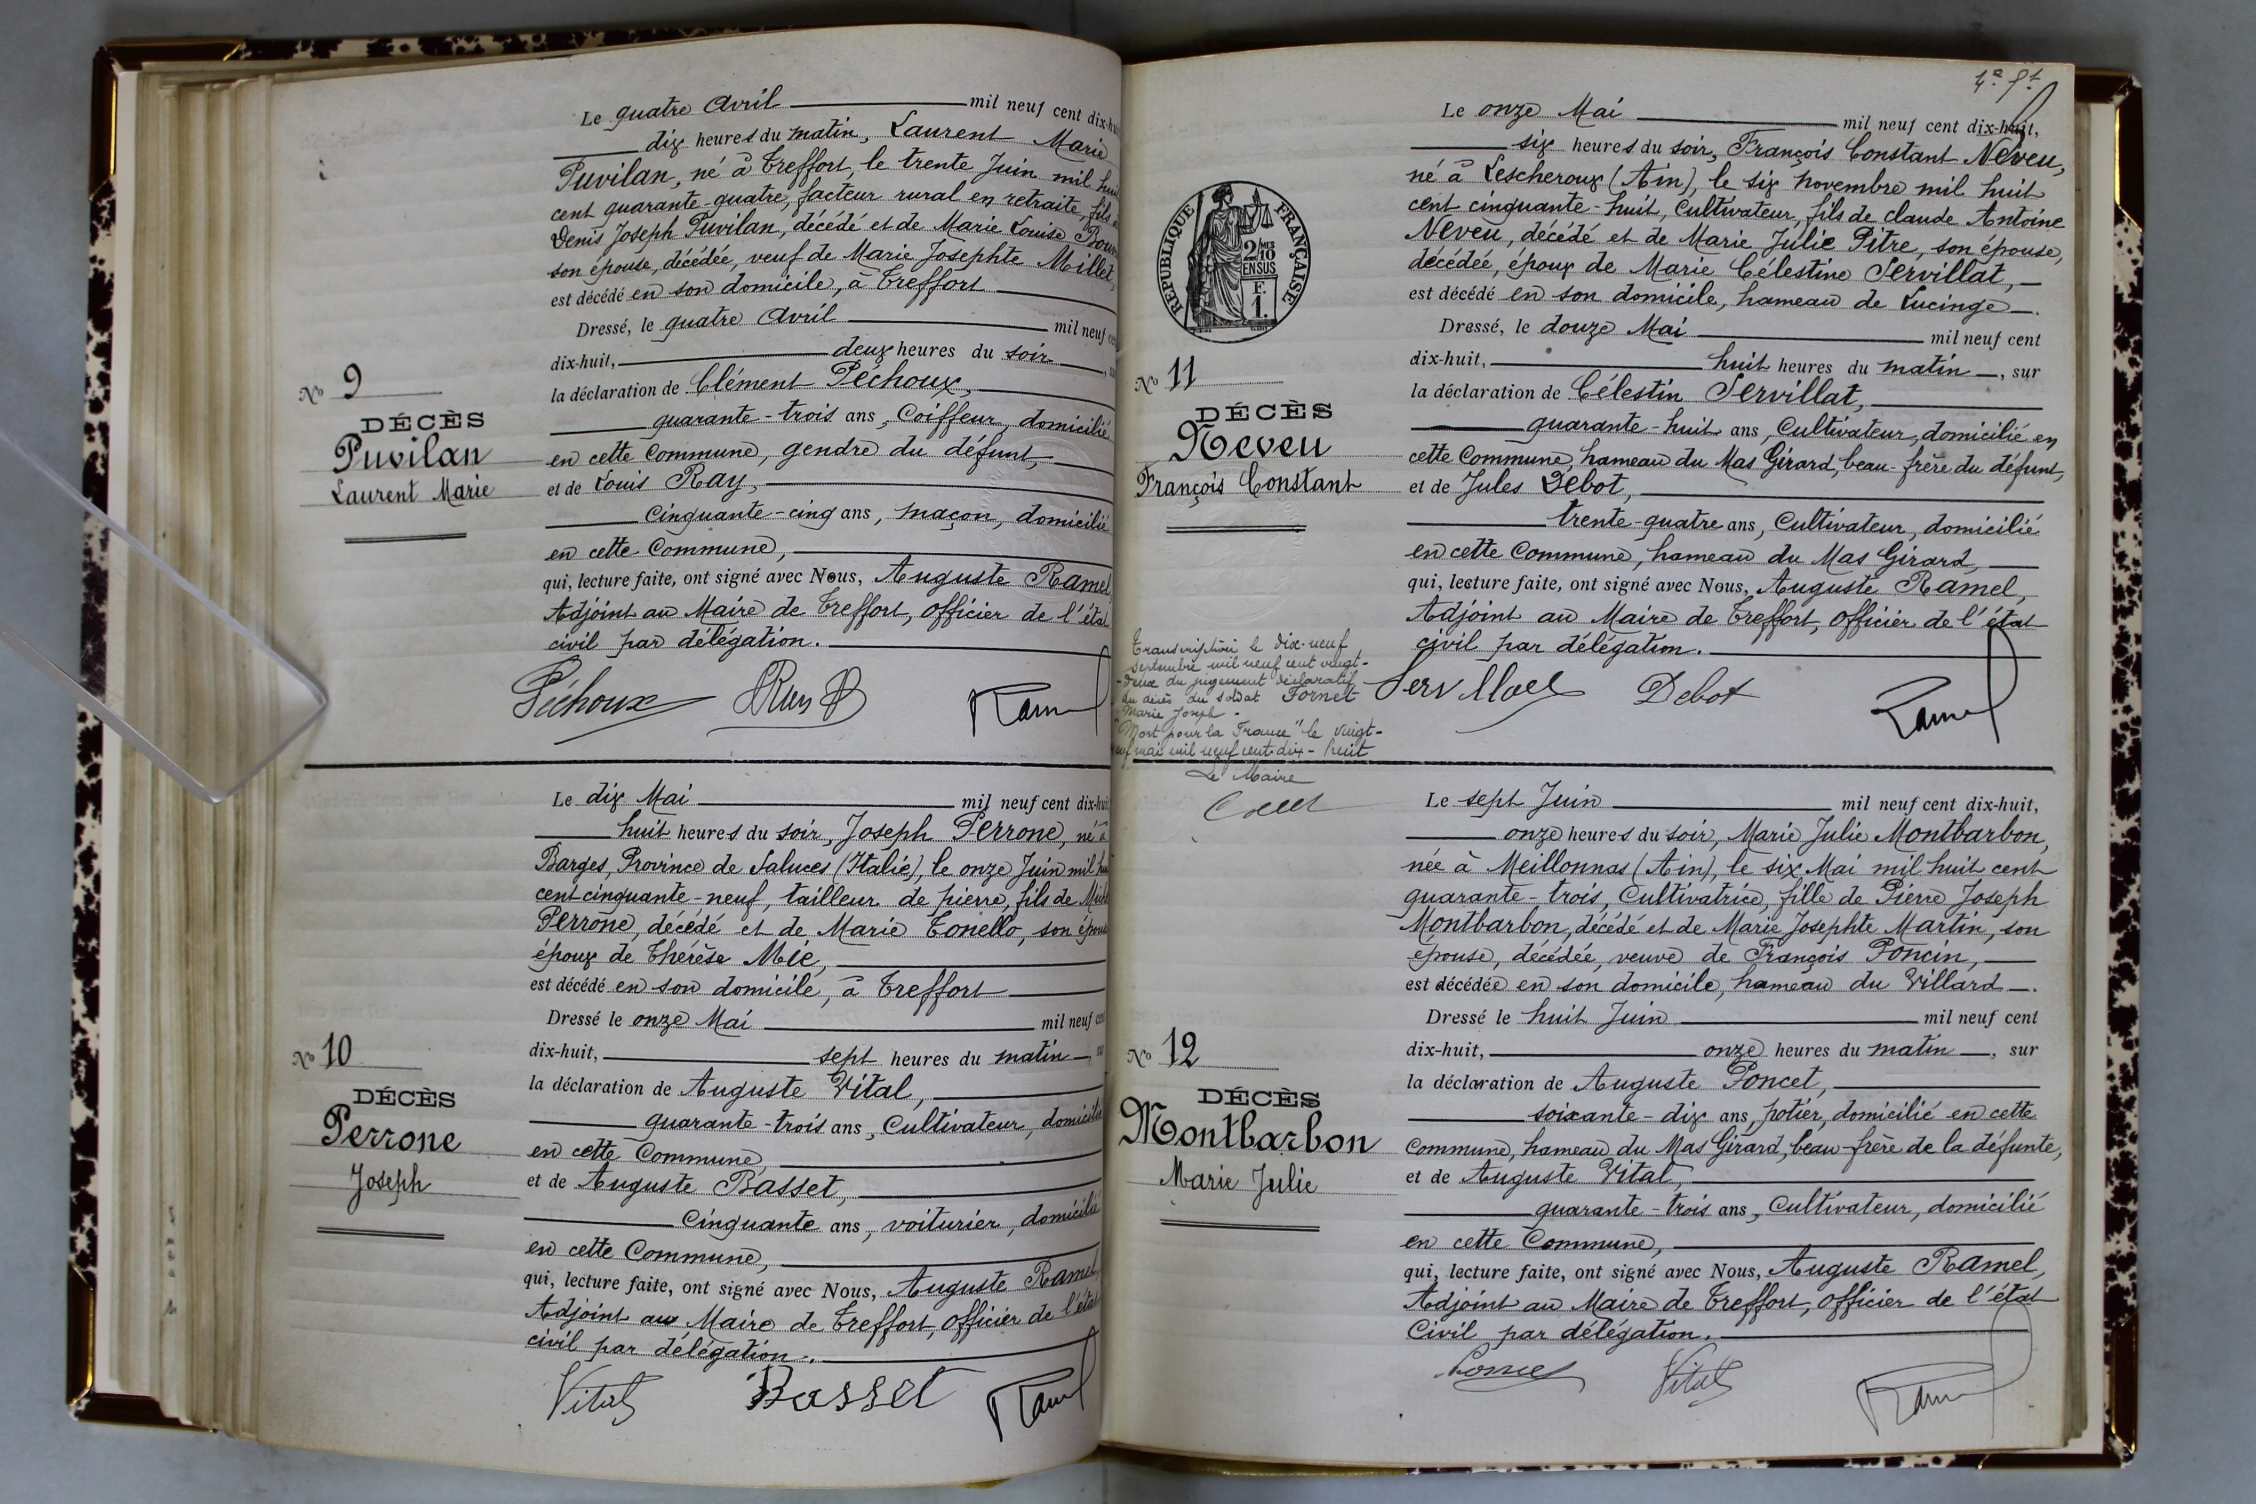 Le quatre Avril mil neuf cent dix-hui
dix heures du matin, Laurent Marie
Puvilan, né à Treffort, le trente Juin mil huit
cent quarante-quatre, facteur rural en retraite, fils de
Denis Joseph Puvilan, décédé et de Marie Louise
son épouse, décédée, veuf de Marie Josephte Millet,
est décédé en son domicile, à Treffort
Dressé, le quatre Avril mil neuf cent
dix-huit, deux heures du soir
la déclaration de Clément Péchoux,
quarante-trois ans, Coiffeur, domicilié
en cette Commune, gendre du défunt,
et de Louis Ray,
Cinquante-cinq ans, maçon, domicilié
en cette Commune,
qui, lecture faite, ont signé avec Nous, Auguste Ramel
Adjoint au Maire de Treffort, Officier de l'état
civil par délégation.
No 9
DÉCÈS
Puvilan
Laurent Marie
Péchoux
Ramel
Le dix Mai mil neuf cent dix-huit
huit heures du soir, Joseph Perrone, né à
Barges, Province de Saluces (Italie), le onze Juin mil huit
cent cinquante-neuf, tailleur de pierre, fils de
Perrone, décédé et de Marie Tonello, son épouse
époux de Thérèse Mie,
est décédé en son domicile, à Treffort
Dressé le onze Mai mil neuf cent
dix-huit, sept heures du matin
la déclaration de Auguste Vital,
quarante-trois ans, Cultivateur, domicilié
en cette Commune,
et de Auguste Basset,
Cinquante ans, voiturier, domicilié
en cette Commune,
qui, lecture faite, ont signé avec Nous, Auguste Ramel,
Adjoint au Maire de Treffort, Officier de l'état
civil par délégation.
No 10
DÉCÈS
Perrone
Joseph
Vital Basset Ramel
RÉPUBLIQUE FRANÇAISE
2/10
EN SUS
F.
1.
Le onze Mai mil neuf cent dix-huit,
six heures du soir, François Constant Neveu,
né à Lescheroux (Ain), le six novembre mil huit
cent cinquante-huit, Cultivateur, fils de Claude Antoine
Neveu, décédé et de Marie Julie Pitre, son épouse,
décédée, époux de Marie Célestine Servillat,
est décédé en son domicile, hameau de Lucinge
Dressé, le douze Mai mil neuf cent
dix-huit, huit heures du matin, sur
la déclaration de Célestin Servillat,
quarante-huit ans, Cultivateur, domicilié en
cette Commune, hameau du Mas Girard, beau-frère du défunt,
et de Jules Debot,
trente-quatre ans, Cultivateur, domicilié
en cette Commune, hameau du Mas Girard,
qui, lecture faite, ont signé avec Nous, Auguste Ramel,
Adjoint au Maire de Treffort, Officier de l'état
civil par délégation.
No 11
DÉCÈS
Neveu
François Constant
Transcription le dix-neuf
septembre mil neuf cent vingt-
deux du jugement déclaratif
du décès du soldat Fornet
Marie Joseph.
"Mort pour la France" le vingt-
neuf mai mil neuf cent dix-huit
Le Maire
Servillat Debot Ramel
Le sept Juin mil neuf cent dix-huit,
onze heures du soir, Marie Julie Montbarbon,
née à Meillonnas (Ain), le six Mai mil huit cent
quarante-trois, Cultivatrice, fille de Pierre Joseph
Montbarbon, décédé et de Marie Josephte Martin, son
épouse, décédée, veuve de François Poncin,
est décédée en son domicile, hameau du Villard.
Dressé le huit Juin mil neuf cent
dix-huit, onze heures du matin, sur
la déclaration de Auguste Poncet,
soixante-dix ans, potier, domicilié en cette
Commune, hameau du Mas Girard, beau-frère de la défunte,
et de Auguste Vital,
quarante-trois ans, Cultivateur, domicilié
en cette Commune,
qui, lecture faite, ont signé avec Nous, Auguste Ramel,
Adjoint au Maire de Treffort, Officier de l'état
Civil par délégation.
No 12
DÉCÈS
Montbarbon
Marie Julie
Poncet Vital Ramel